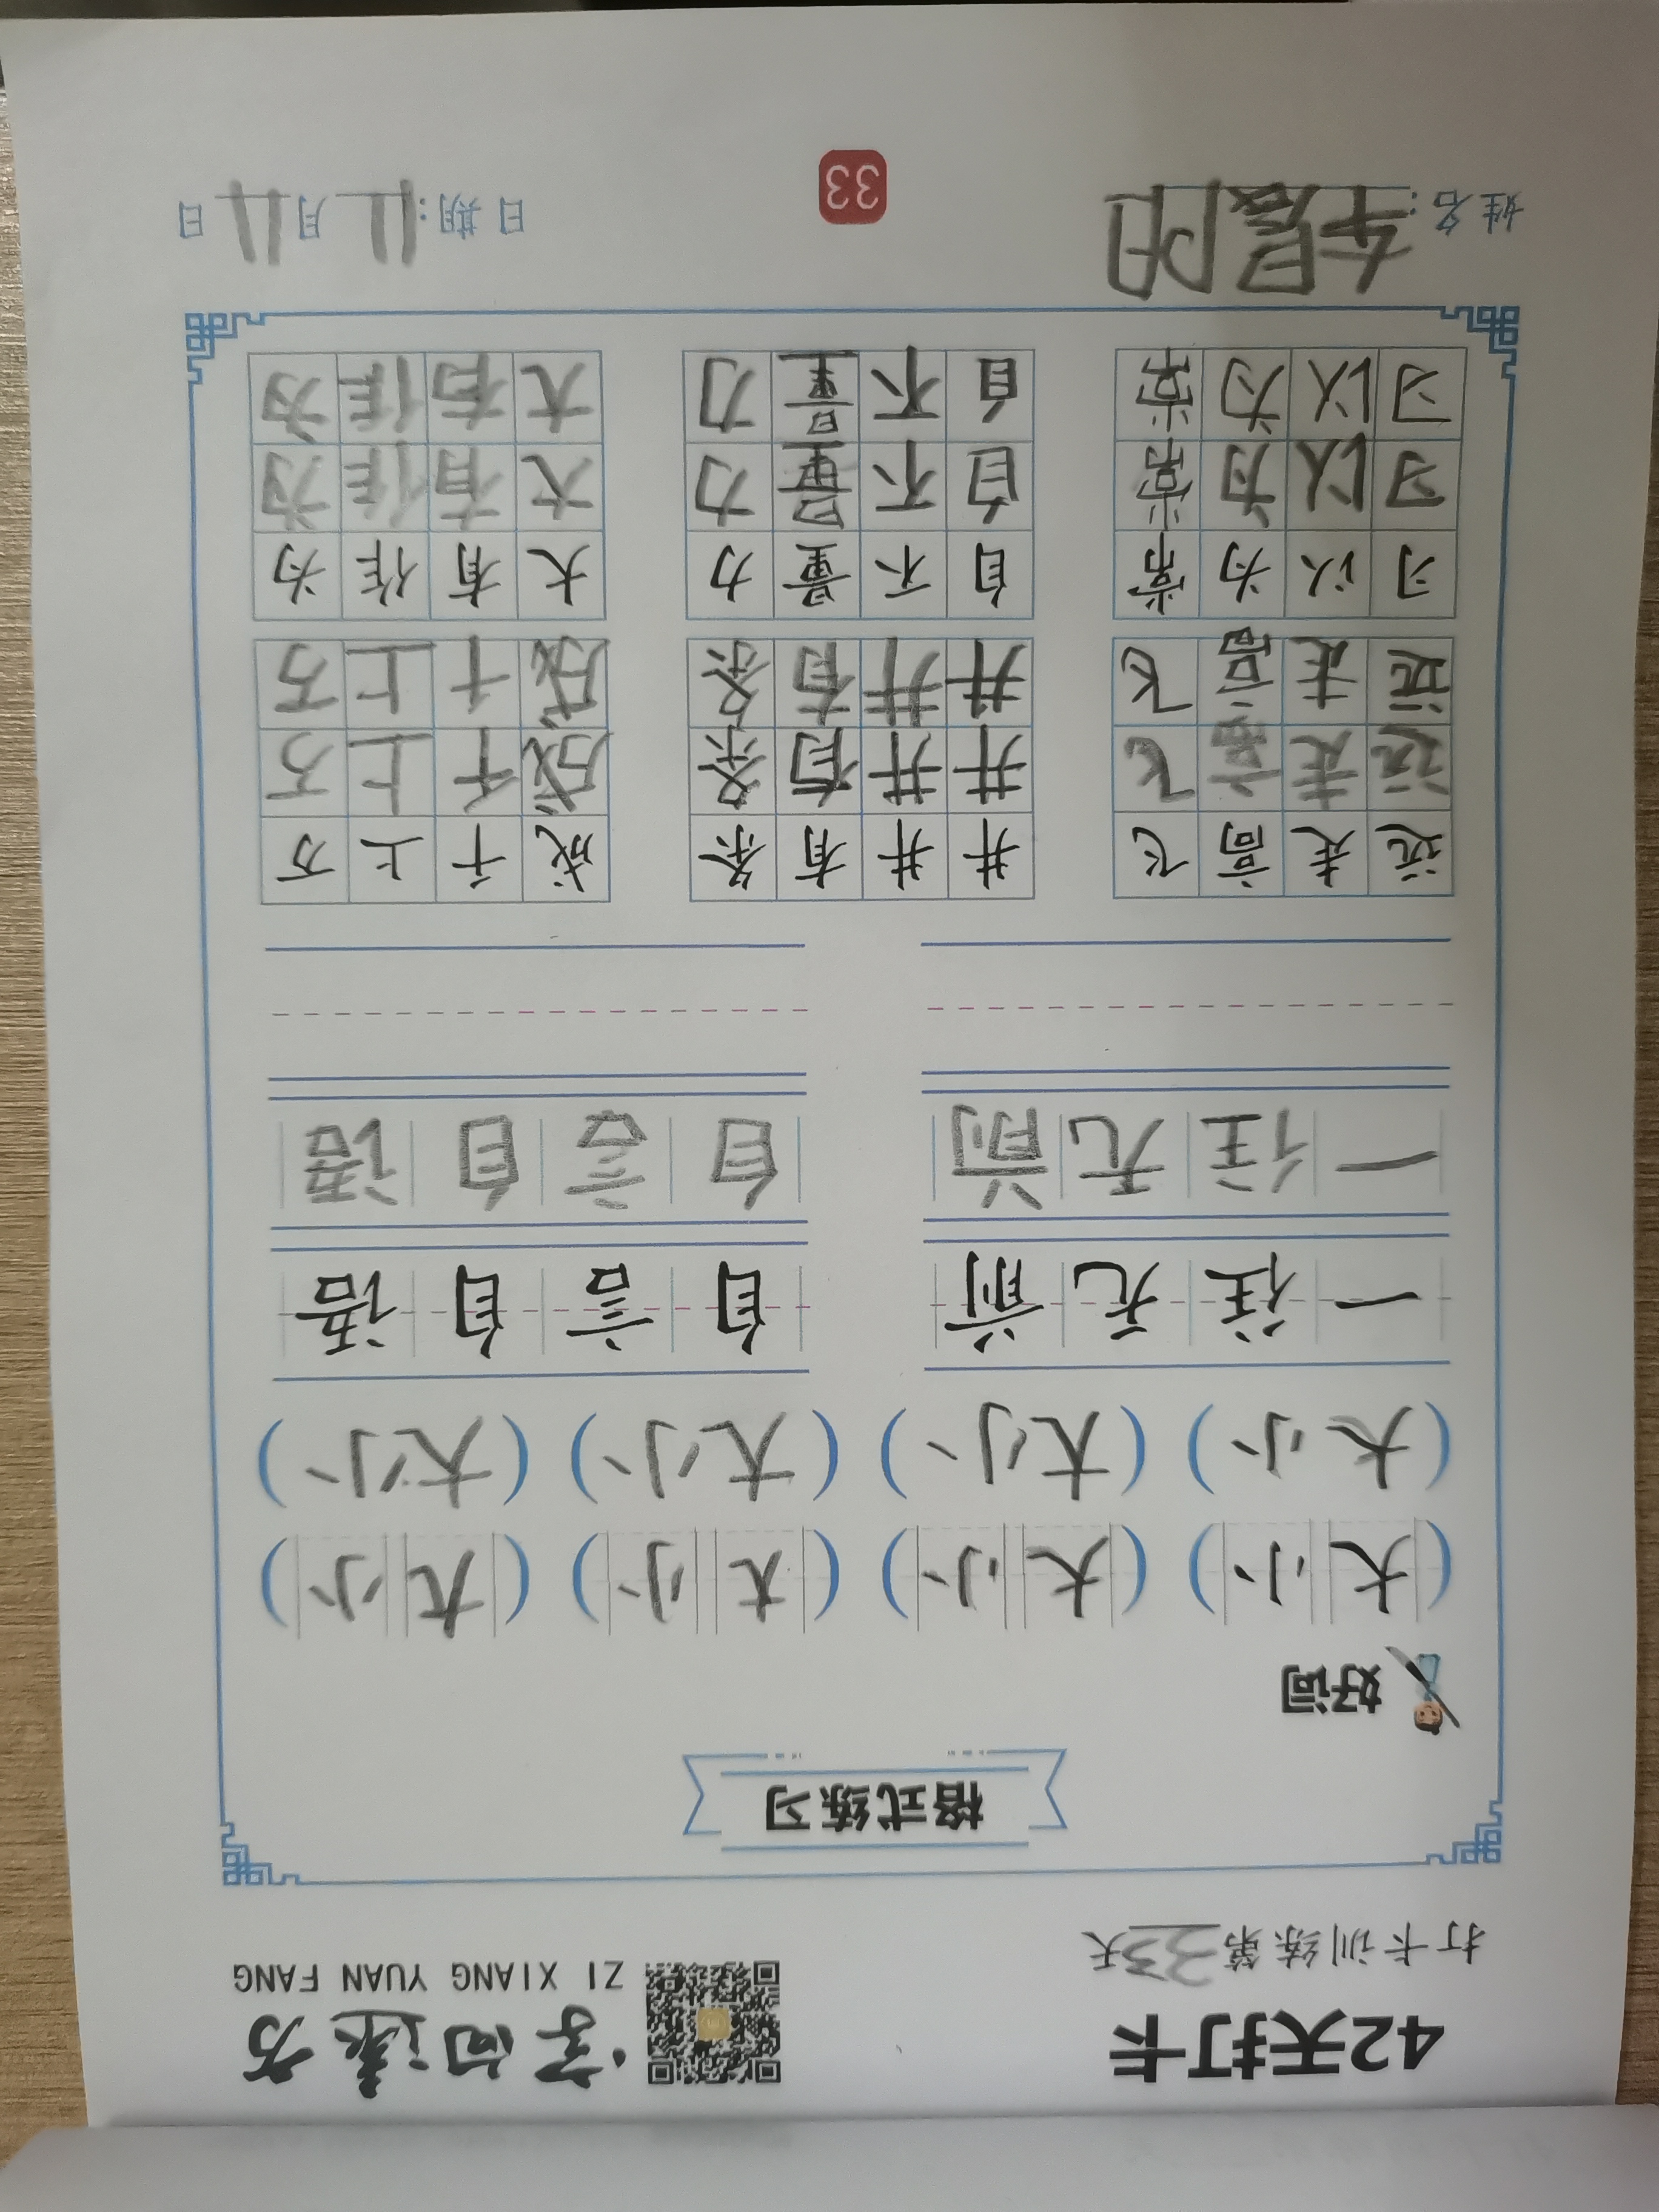 42天打卡 字向远方
打卡训练第33天 ZI XIANG YUAN FANG
格式练习
好词
(大小) (大小) (大小) (大小)
(大小) (大小) (大小) (大小)
一往无前 自言自语
一往无前 自言自语
远走高飞 井井有条 成千上万
远走高飞 井井有条 成千上万
远走高飞 井井有条 成千上万
习以为常 自不量力 大有作为
习以为常 自不量力 大有作为
习以为常 自不量力 大有作为
姓名:车晨阳 33 日期:11月11日